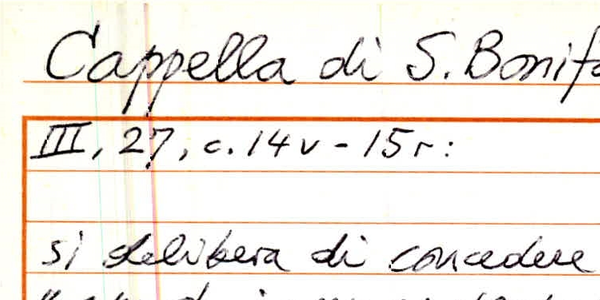 Cappella di S. Bonifa
III, 27, c. 14v - 15r:
si delibera di concedere